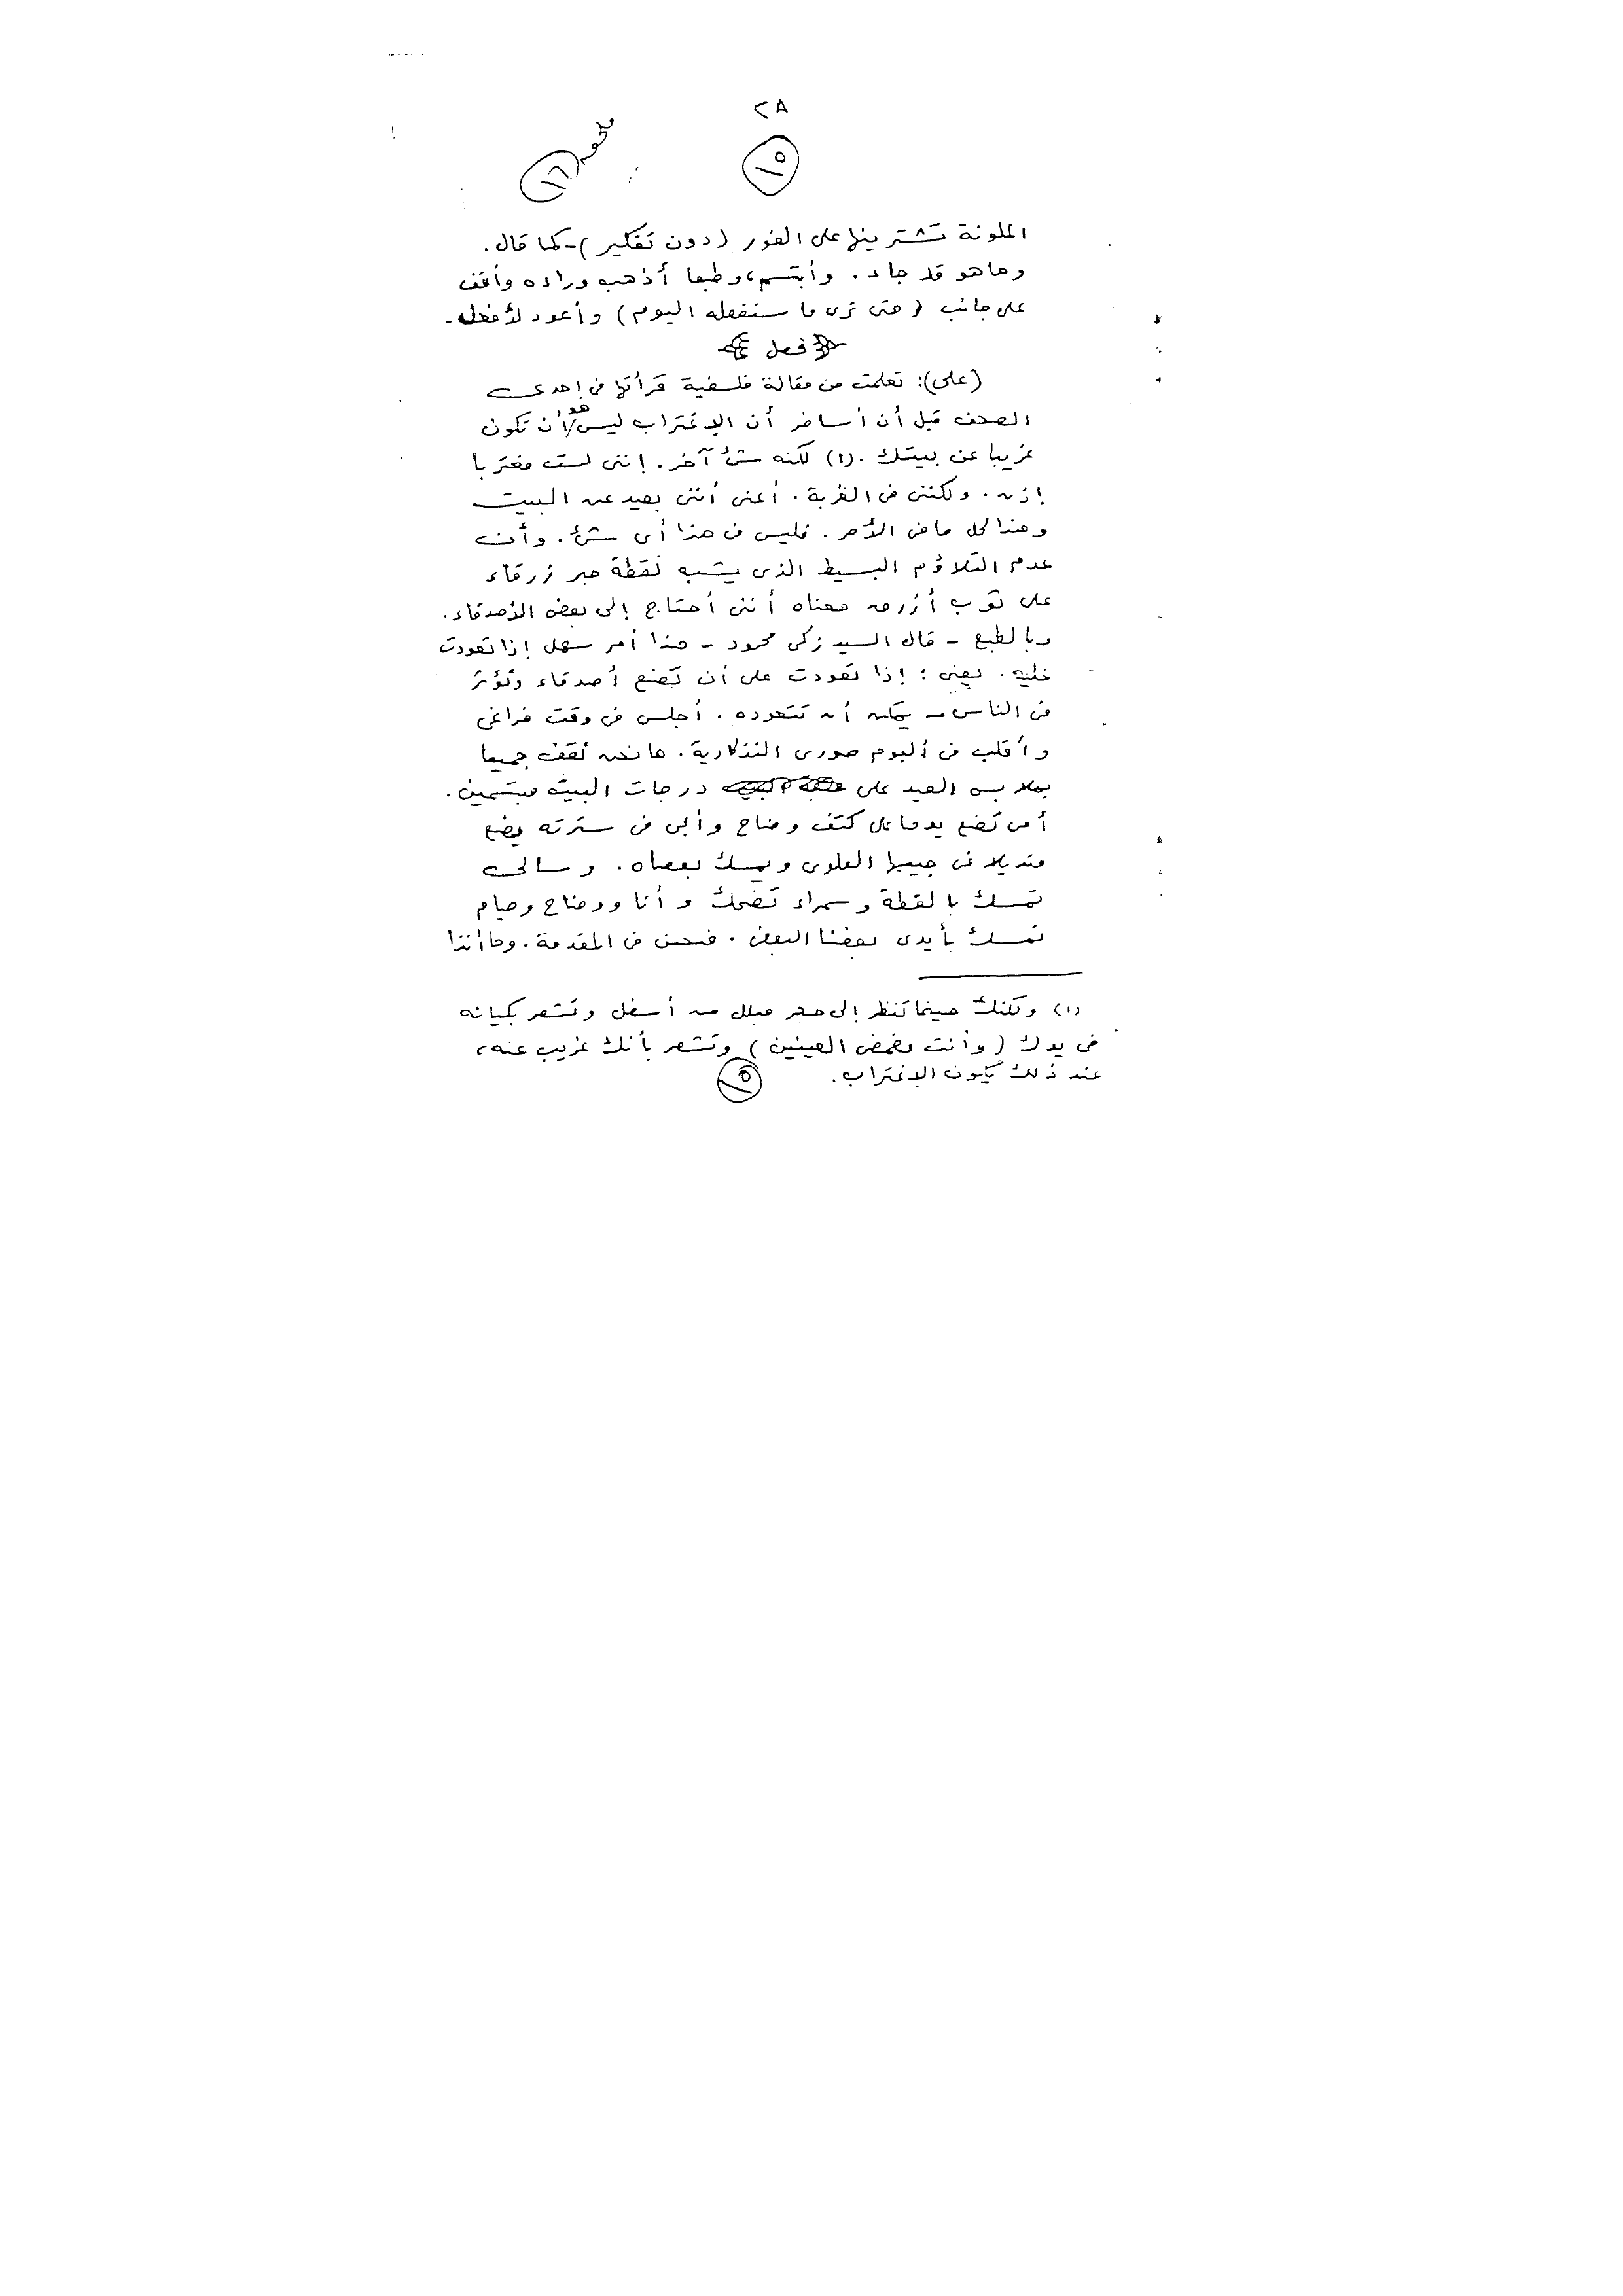 ٢٨
١٥
١٦
الملونة تشترينها على الفور (دون تفكير) - كما قال.
وها هو قد جاء. وأبتسم، وطبعا أذهب وراءه وأقف
على جانب (حتى نرى ما سنفعله اليوم) وأعود لأفعله.
فصل
(على): تعلمت من مقالة فلسفية قرأتها فى إحدى
الصحف قبل أن أسافر أن الإغتراب ليس هو أن تكون
غريبا عن بيتك. (١) لكنه شئ آخر. إننى لست مغتربا
إذن. ولكننى فى الغربة. أعنى أننى بعيد عن البيت
وهذا كل ما فى الأمر. فليس فى هذا أى شئ. وأن
عدم التلاؤم البسيط الذى يشبه نقطة حبر زرقاء
على ثوب أزرق معناه أننى أحتاج إلى بعض الأصدقاء.
وبالطبع - قال السيد زكى محمود - هذا أمر سهل إذا تعودت
عليه. يعنى: إذا تعودت على أن تصنع أصدقاء وتؤثر
فى الناس - يمكن أن تتعوده. أجلس فى وقت فراغى
وأقلب فى ألبوم صورى التذكارية. ها نحن نقف جميعا
بملابس العيد على درجات البيت مبتسمين.
أمى تضع يدها على كتف وضاح وأبى فى سترته يضع
منديلا فى جيبها العلوى ويمسك بعصاه. وسالى
تمسك بالقطة وسمراء تضحك وأنا ووضاح وهيام
نمسك بأيدى بعضنا البعض. فنحن فى المقدمة. وها أنذا
(١) ولكنك حينما تنظر إلى حجر مبلل من أسفل وتشعر بكيانه
فى يدك (وأنت مغمض العينين) وتشعر بأنك غريب عنه،
عند ذلك يكون الإغتراب.
١٥